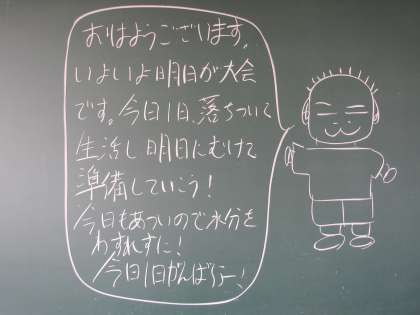 おはようございます。
いよいよ明日が大会
です。今日1日、落ちついて
生活し明日にむけて
準備していこう！
今日もあついので水分を
わすれずに！
今日1日がんばろー！